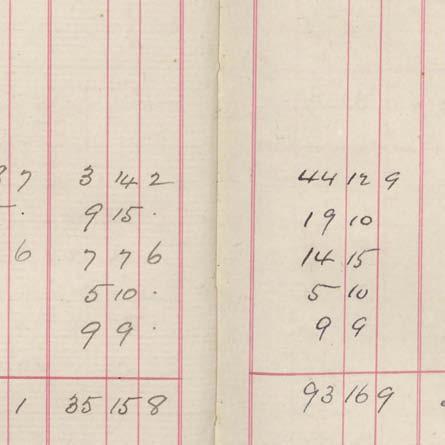 7 3 14 2 44 12 9
. 9 15 . 19 10
6 7 7 6 14 15
5 10 . 5 10
9 9 . 9 9
1 35 15 8 93 16 9